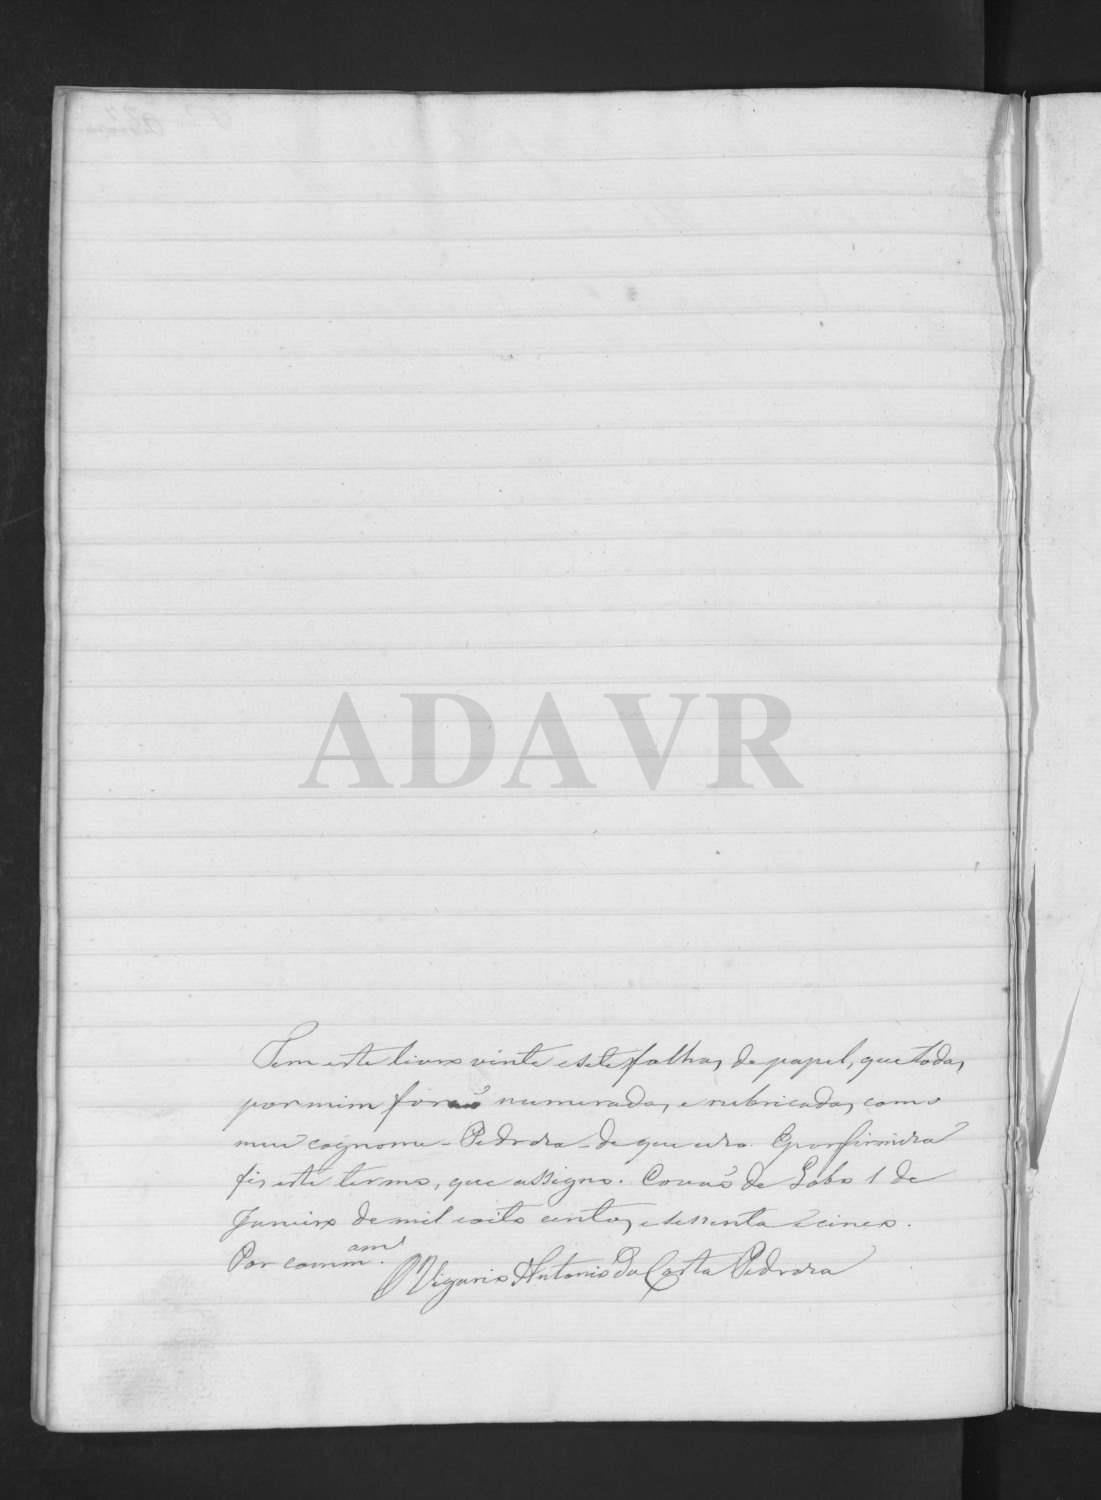 ADAVR
Tem este livro vinte e sete folhas de papel, que todas
por mim forão numeradas, e rubricadas com o
meu cognome - Pedroza - de que uso. E por firmeza
fiz este termo, que assigno. Covão de Lobo 1 de
Janeiro de mil oito centos, e sessenta e cinco.
Por comm.am
O Vigario Antonio Da Costa Pedroza